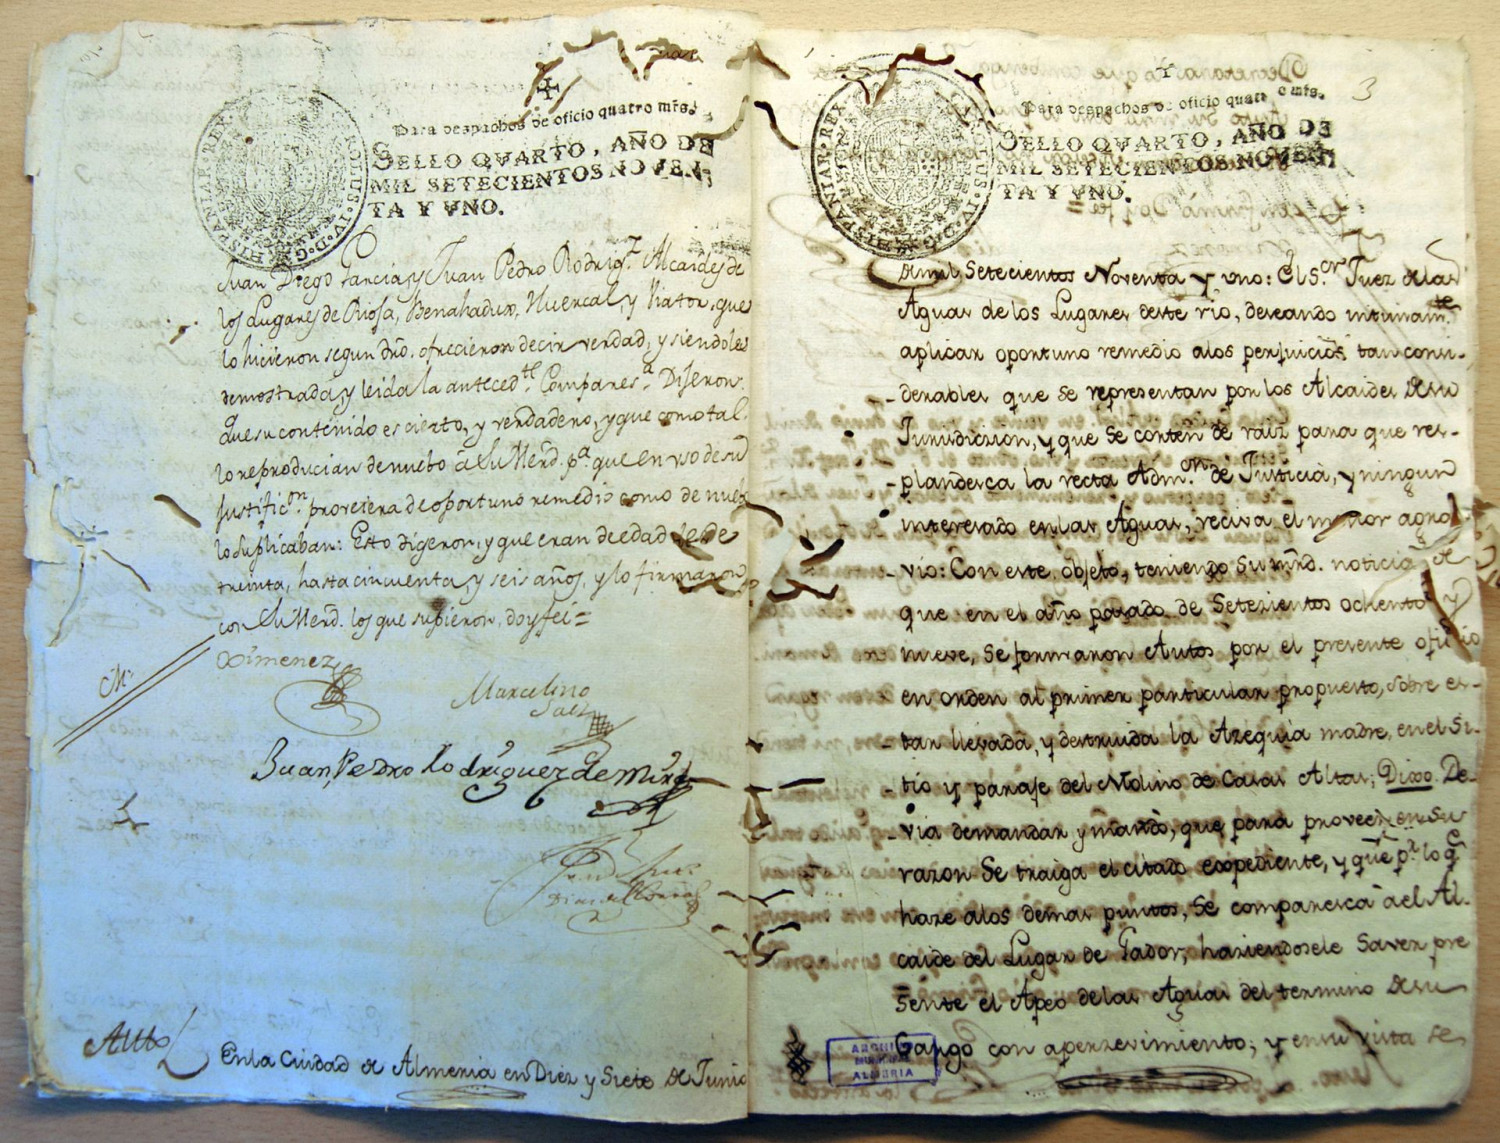 Para despachos de oficio quatro mrs.
SELLO QVARTO, AÑO DE
MIL SETECIENTOS NOVEN-
TA Y VNO.
CAROLUS·IV·D·G·HISPANIAR·REX
Juan Diego Garcia, y Juan Pedro Rodrigz. Alcaides de
los Lugares de Rioja, Benahadux, Huercal, y Viator, que
lo hicieron segun dro. ofrecieron decir verdad, y siendoles
demostrada, y leida la antecedte. Comparesa. Dijeron:
Que su contenido es cierto, y verdadero, y que como tal
lo reproducian de nuebo a Su Merd. pa. que en vso de su
Justificon. proveiera de oportuno remedio como de nuebo
lo suplicaban: Esto digeron, y que eran de edad desde
treinta, hasta cincuenta, y seis años, y lo firmaron
con Su Merd. los que supieron, doy feè=
Ximenez
Marcelino
Saez
Juan Pedro Rodriguez de
Auto
En la Ciudad de Almeria en Diez y Siete de Junio
3
Para despachos de oficio quatro mrs.
SELLO QVARTO, AÑO DE
MIL SETECIENTOS NOVEN-
TA Y VNO.
CAROLUS·IV·D·G·HISPANIAR·REX
de mil Setecientos Noventa y uno: El Sor. Juez de las
Aguas de los Lugares deste rio, deseando intimamte.
aplicar oportuno remedio alos perjuicios tan consi-
derables que se representan por los Alcaides de su
Jurisdiczion, y que se corten de raiz para que res-
plandesca la recta Admon. de Justicia, y ningun
interesado en las Aguas, reciva el menor agra-
vio: Con este objeto, teniendo Su mrd. noticia de
que en el año pasado de Setezientos ochenta y
nueve, se formaron Autos por el presente oficio
en orden al primer particular propuesto, sobre es-
tar llevada, y destruida la Azequia madre, en el Si-
tio y paraje del Molino de Casas Altas; Dixo De-
via demandar y mandò, que para proveer en su
razon se traiga el citado expediente, y que pr. lo q.
haze alos demas puntos, se comparesca à el Al-
caide del Lugar de Gador, haziendosele saver pre
sente el Apeo delas Aguas del termino de su
Cargo con aperzevimiento; y en su vista se
ARCHIVO
MUNICIPAL
ALMERIA